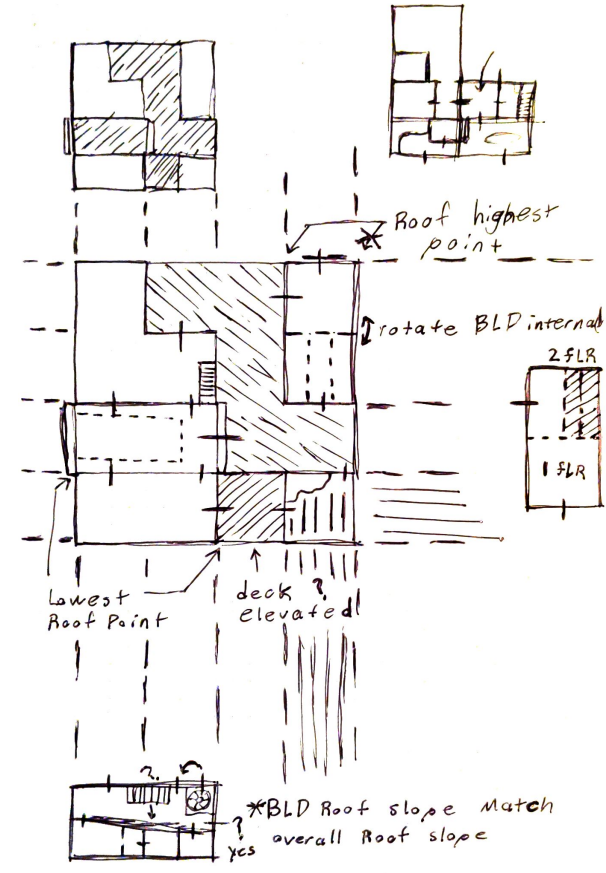 Roof highest
point
rotate BLD internal
2 FLR
1 FLR
Lowest
Roof Point
deck ?
elevated
?
*BLD Roof slope Match
? overall Roof slope
yes